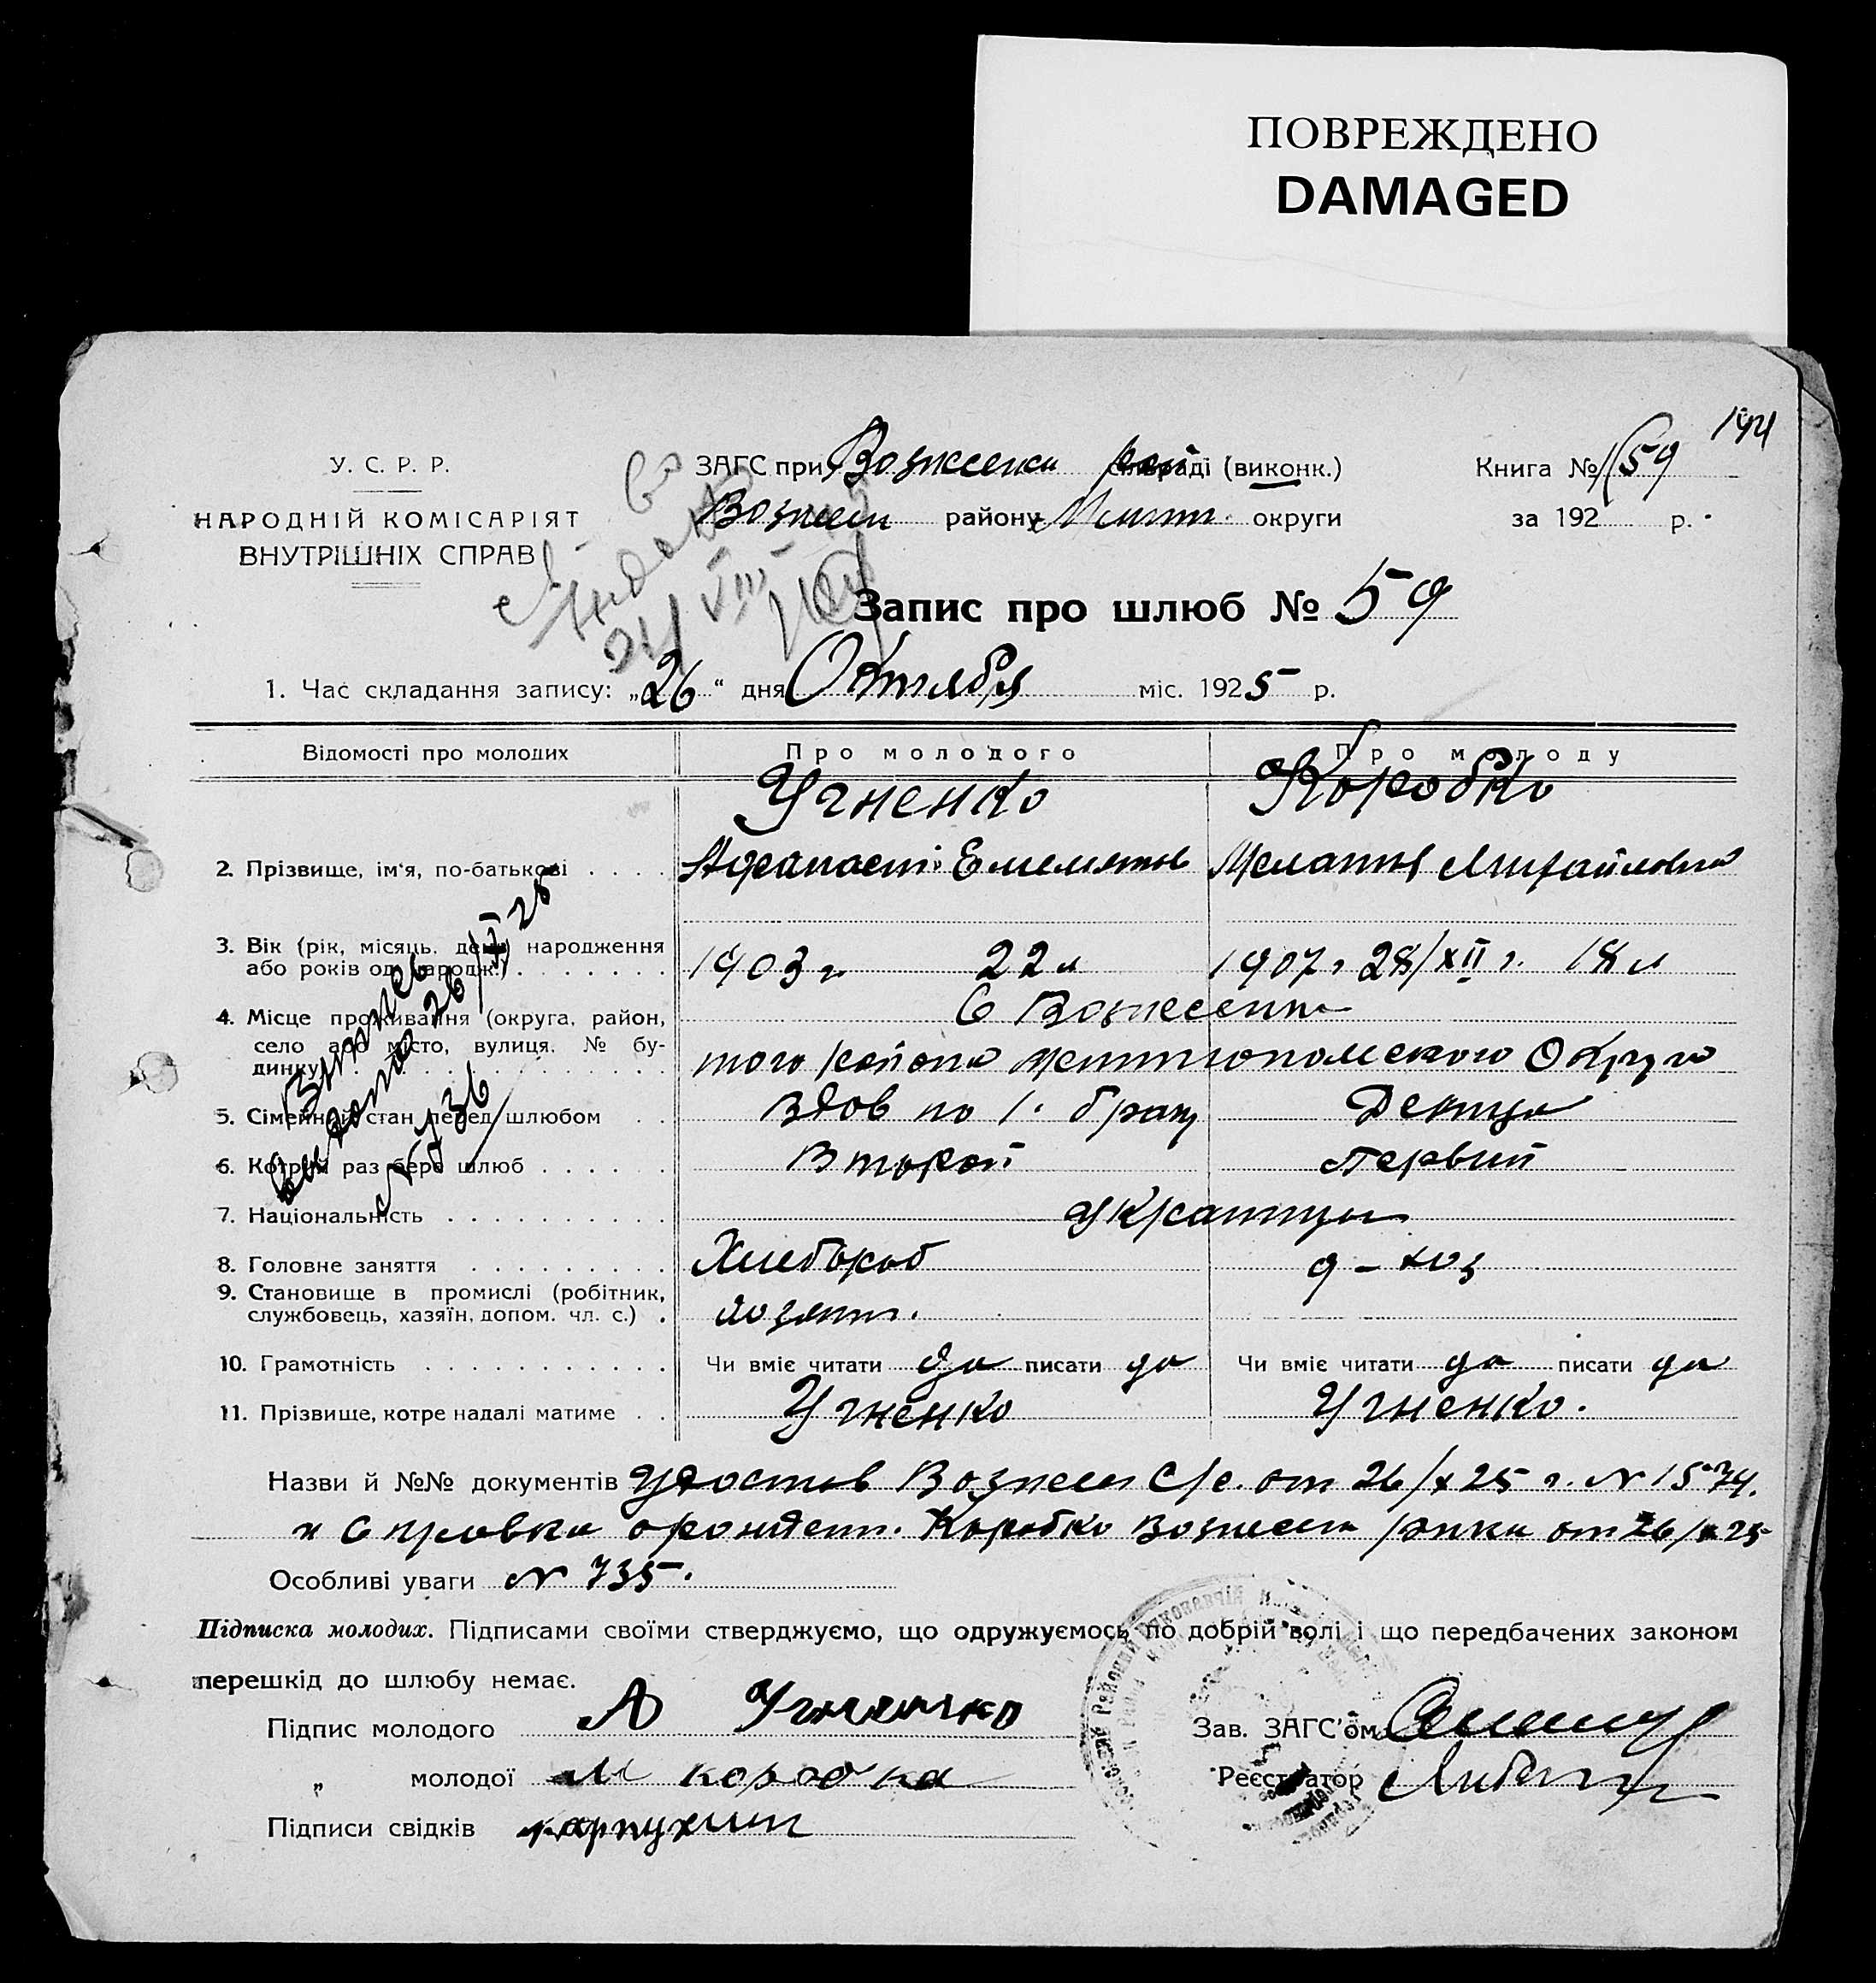 ПОВРЕЖДЕНО
DAMAGED
144
У. С. Р. Р.
НАРОДНІЙ КОМІСАРІЯТ
ВНУТРІШНІХ СПРАВ
ЗАГС при раді (виконк.)
Вознесен району округи
Книга № 59
за 192 р.
Запис про шлюб № 59
1. Час складання запису: „26“ дня Октября міс. 1925 р.
Відомості про молодих Про молодого Про молоду
Угненко Коробко
2. Прізвище, ім'я, по-батькові . . . . Афанасий Емельянов Мелания Михайловна
3. Вік (рік, місяць, день народження 1903 г 22 л 1907 г 28/XII г. 18 л
або років од народж.) . . . . . . .
4. Місце проживання (округа, район, С Вознесенка
село або місто, вулиця, № бу- того района Мелитопольского Округа
динку)
5. Сімейний стан перед шлюбом . . Вдов по 1. браку Девица
6. Котрий раз бере шлюб . . . . . Второй Первый
7. Національність . . . . . . . . . Украинцы
8. Головне заняття . . . . . . . . Хлебороб д-хоз
9. Становище в промислі (робітник,
службовець, хазяїн, допом. чл. с.) . хозяин.
10. Грамотність . . . . . . . . . . . Чи вміє читати да писати да Чи вміє читати да писати да
11. Прізвище, котре надалі матиме . . Угненко Угненко.
Выпись
выдана 26/X 25
№ 36
Назви й №№ документів Удостов Вознесен С/с. от 26/X 25 г. № 1574.
и Справка Коробко Вознесен рика от 26/X 25
Особливі уваги № 735.
Підписка молодих. Підписами своїми стверджуємо, що одружуємось по добрій волі і що передбачених законом
перешкід до шлюбу немає.
Підпис молодого А Угненко
„ молодої М коробка
Підписи свідків карпухин
Зав. ЗАГС'ом
Реєстратор